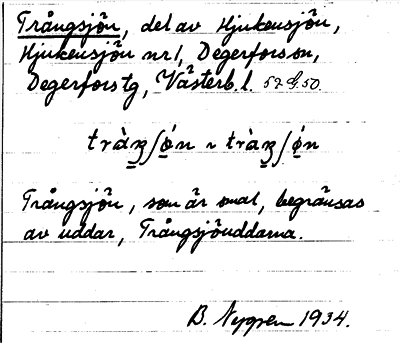 Trångsjön, del av Hjukensjön,
Hjukensjön nr 1, Degerfors sn,
Degerfors tg, Västerb. l.
tràŋʃön ~ tràŋʃön
Trångsjön, som är smal, begränsas
av uddar, Trångsjöuddarna.
B. Nygren 1934.